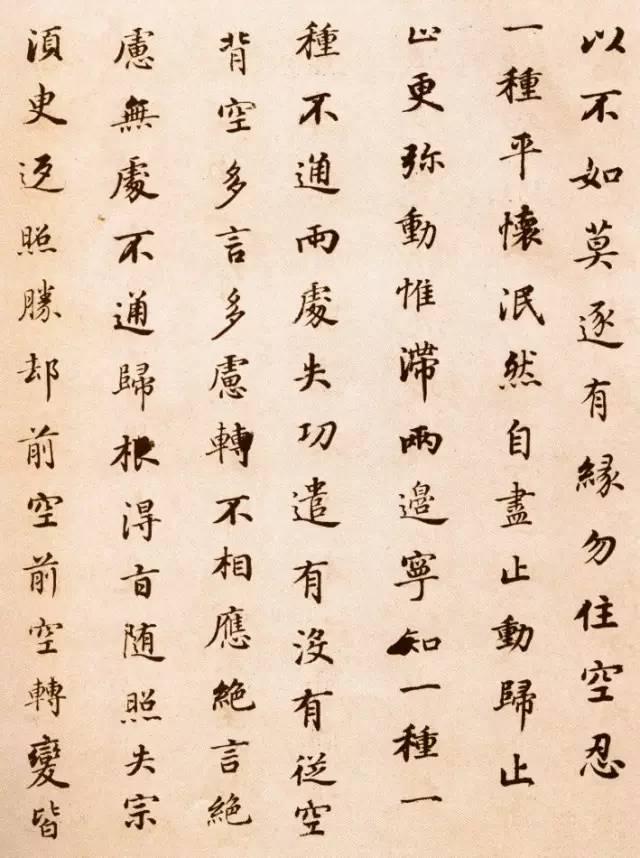 以不如莫逐有緣勿住空忍
一種平懷泯然自盡止動歸止
止更弥動惟滞兩邉寧知一種一
種不通兩處失功遣有沒有從空
背空多言多慮轉不相應絶言絶
慮無處不通歸根得旨随照失宗
湏臾返照勝却前空前空轉變皆